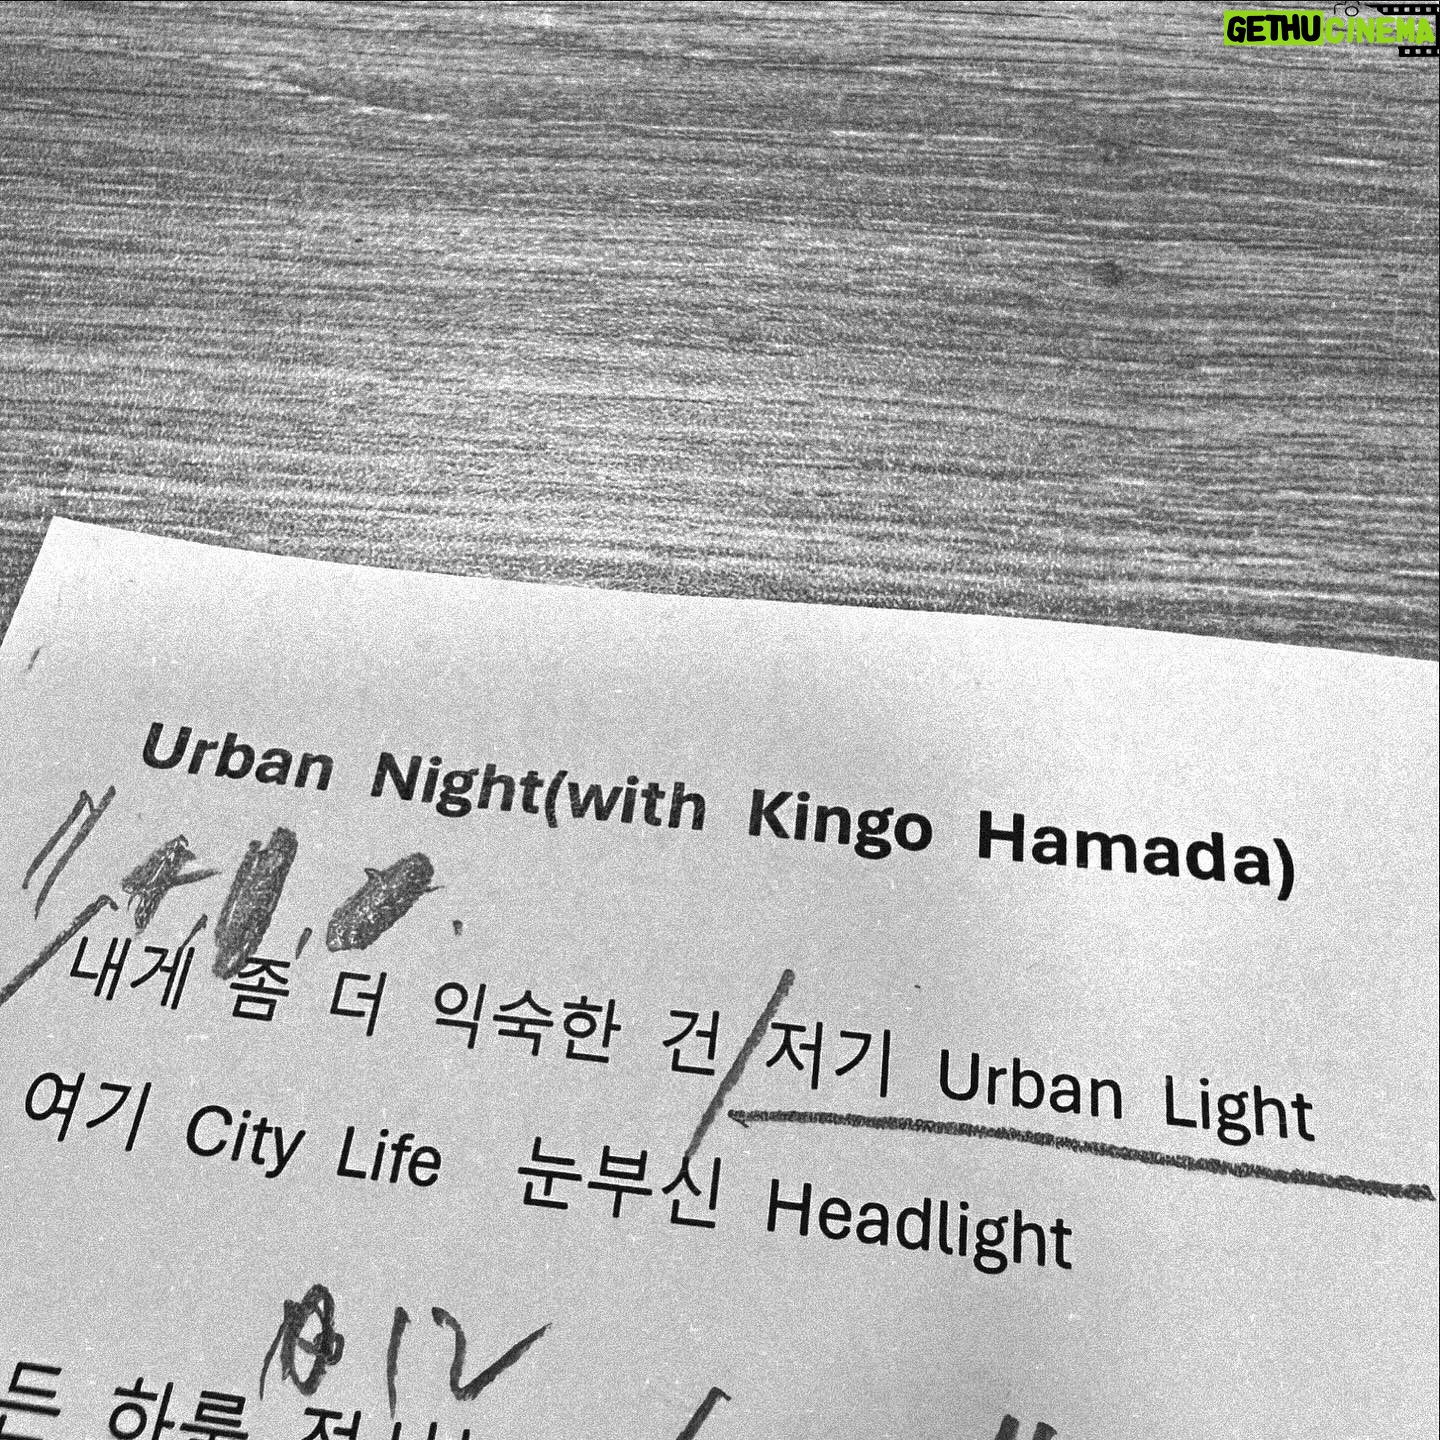 GETHUCINEMA
Urban Night(with Kingo Hamada)
내게 좀 더 익숙한 건 저기 Urban Light
여기 City Life 눈부신 Headlight
12
든 하루